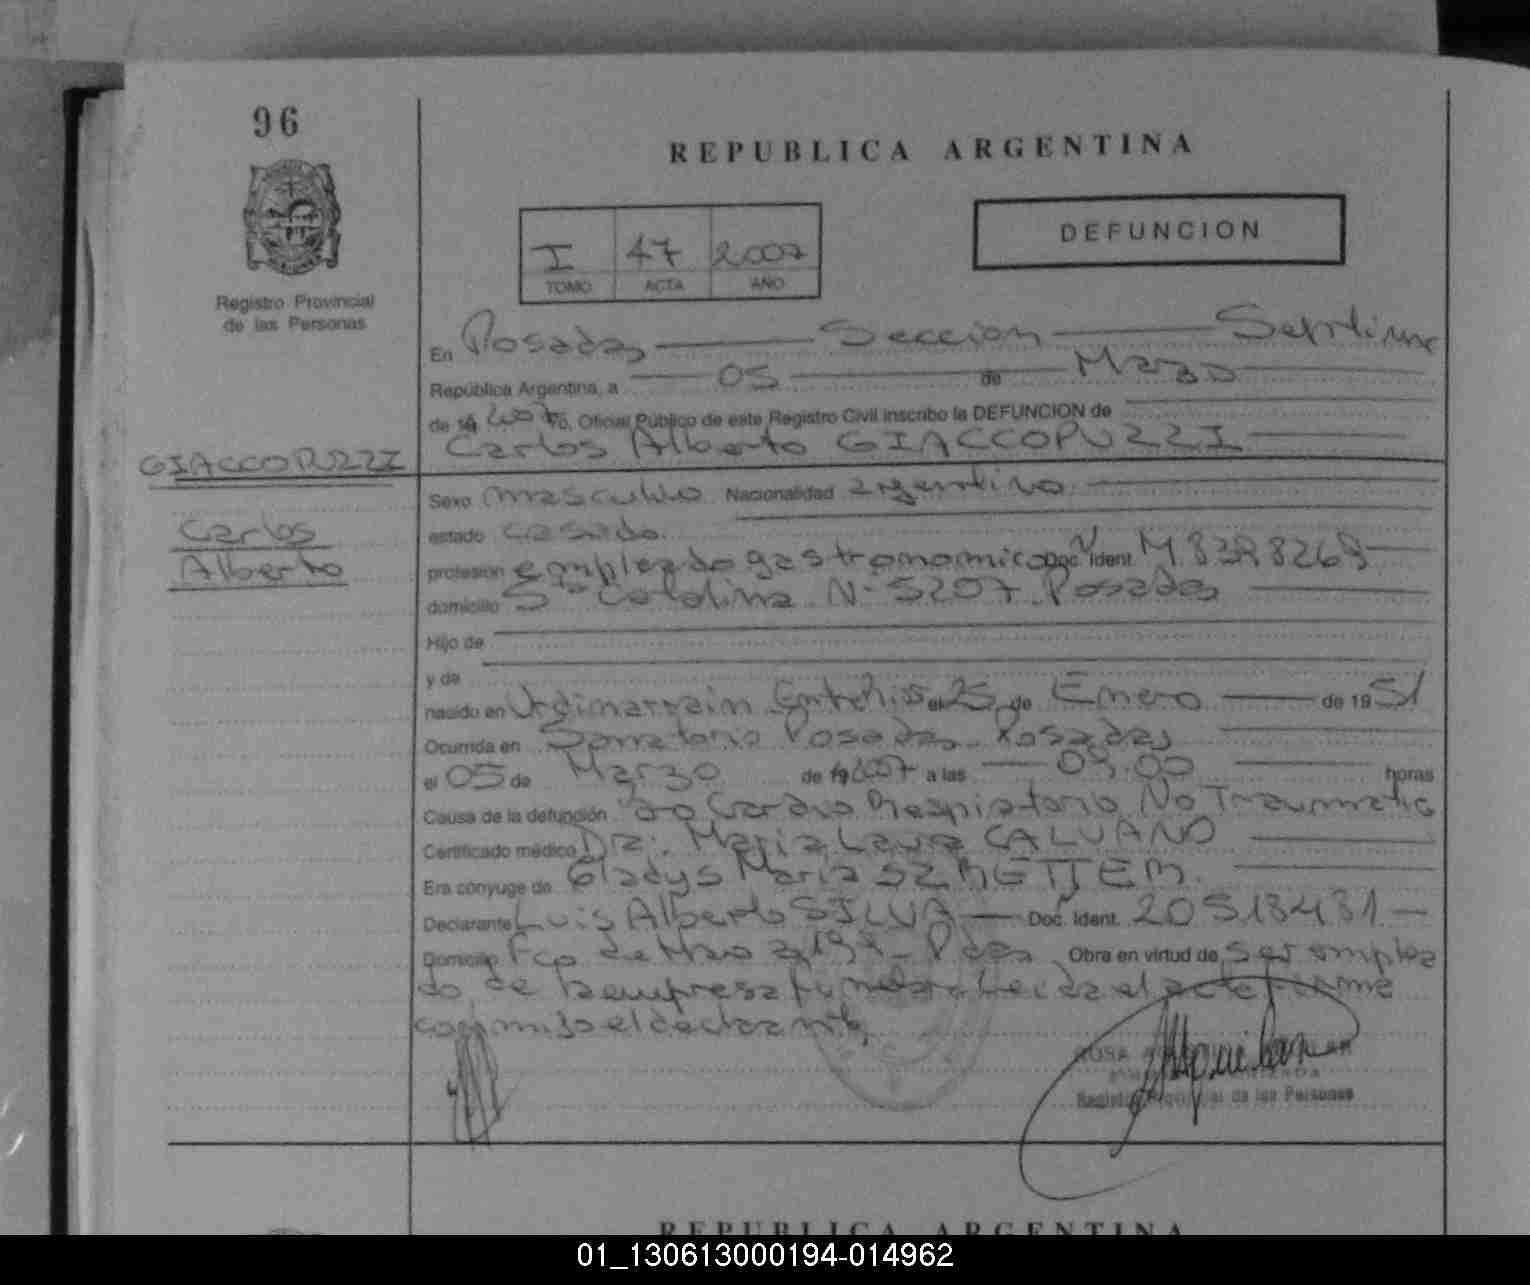 96
REPUBLICA ARGENTINA
Registro Provincial
de las Personas
I 47 2007
TOMO ACTA AÑO
DEFUNCION
En Posadas Seccion Septima
República Argentina, a 05 de Marzo
de 19 2007 Yo, Oficial Público de este Registro Civil inscribo la DEFUNCION de
Carlos Alberto GIACCOPUZZI
GIACCOPUZZI
Carlos
Alberto
Sexo masculino Nacionalidad argentino
estado casado
profesión empleado gastronomico Doc. Ident. M 8398269
domicilio Sta Catalina N- 5207 Posadas
Hijo de
y de
nacido en Urdinarrain Entre Rios el 25 de Enero de 1951
Ocurrida en Sanatorio Posadas Posadas
el 05 de Marzo de 19 2007 a las horas
Causa de la defunción Cardio Respiratorio No Traumatic
Certificado médico Dra. Maria Laura CALVANO
Era cónyuge de Gladys Maria
Declarante Luis Alberto SILVA Doc. Ident. 20518431
Domicilio Fco de Haro Pdas Obra en virtud de ser emplea
do de la empresa leida el acta firma
conmigo el declarante
Registro Provincial de las Personas
REPUBLICA ARGENTINA
01_130613000194-014962